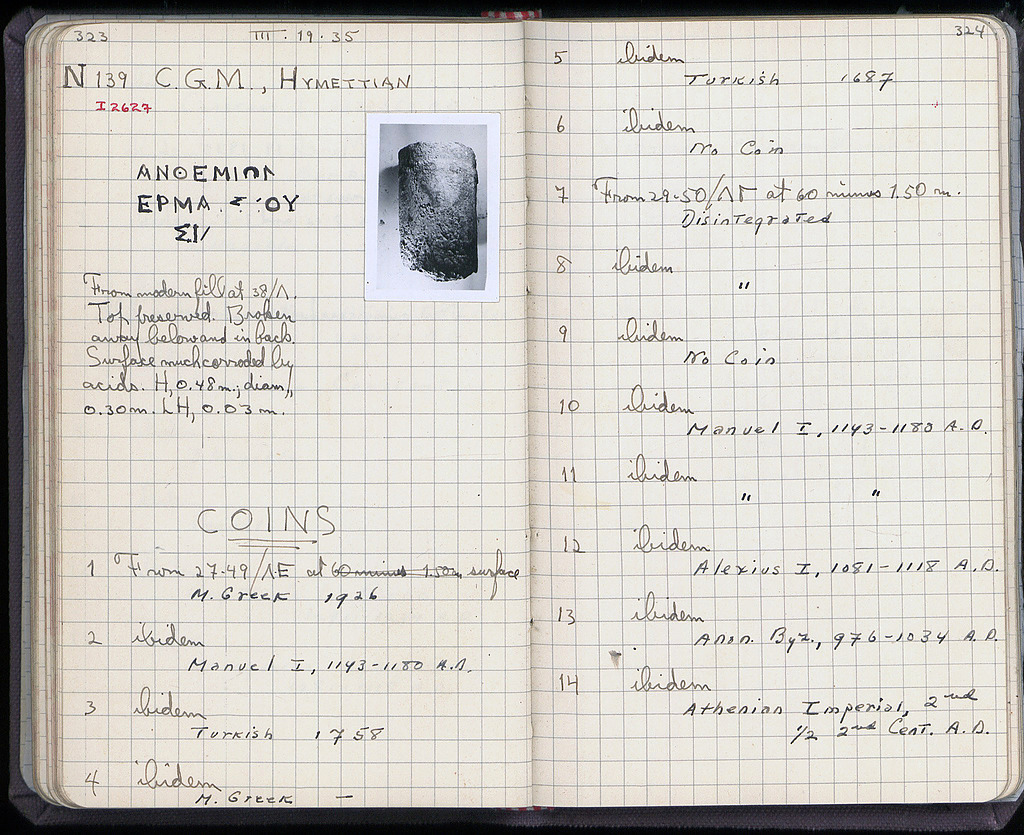 323
III · 19 · 35
N 139 C.G.M., HYMETTIAN
I 2627
ΑΝΘΕΜΙΩΝ
ΕΡΜΑ . Σ : ΟΥ
From modern fill at 38/Λ.
Top preserved. Broken
away below and in back.
Surface much corroded by
acids. H, 0.48 m.; diam.,
0.30 m. LH, 0.03 m.
COINS
1 From 27-49/ΛΕ at 60 minus 1.50m surface
M. Greek 1926
2 ibidem
Manuel I, 1143-1180 A.D.
3 ibidem
Turkish 1758
4 ibidem
M. Greek —
324
5 ibidem
Turkish 1687
6 ibidem
No Coin
7 From 29-50/ΛΓ at 60 minus 1.50 m.
Disintegrated
8 ibidem
"
9 ibidem
No Coin
10 ibidem
Manuel I, 1143-1180 A.D.
11 ibidem
" "
12 ibidem
Alexius I, 1081-1118 A.D.
13 ibidem
Anon. Byz., 976-1034 A.D.
14 ibidem
Athenian Imperial, 2nd
1/2 2nd Cent. A.D.